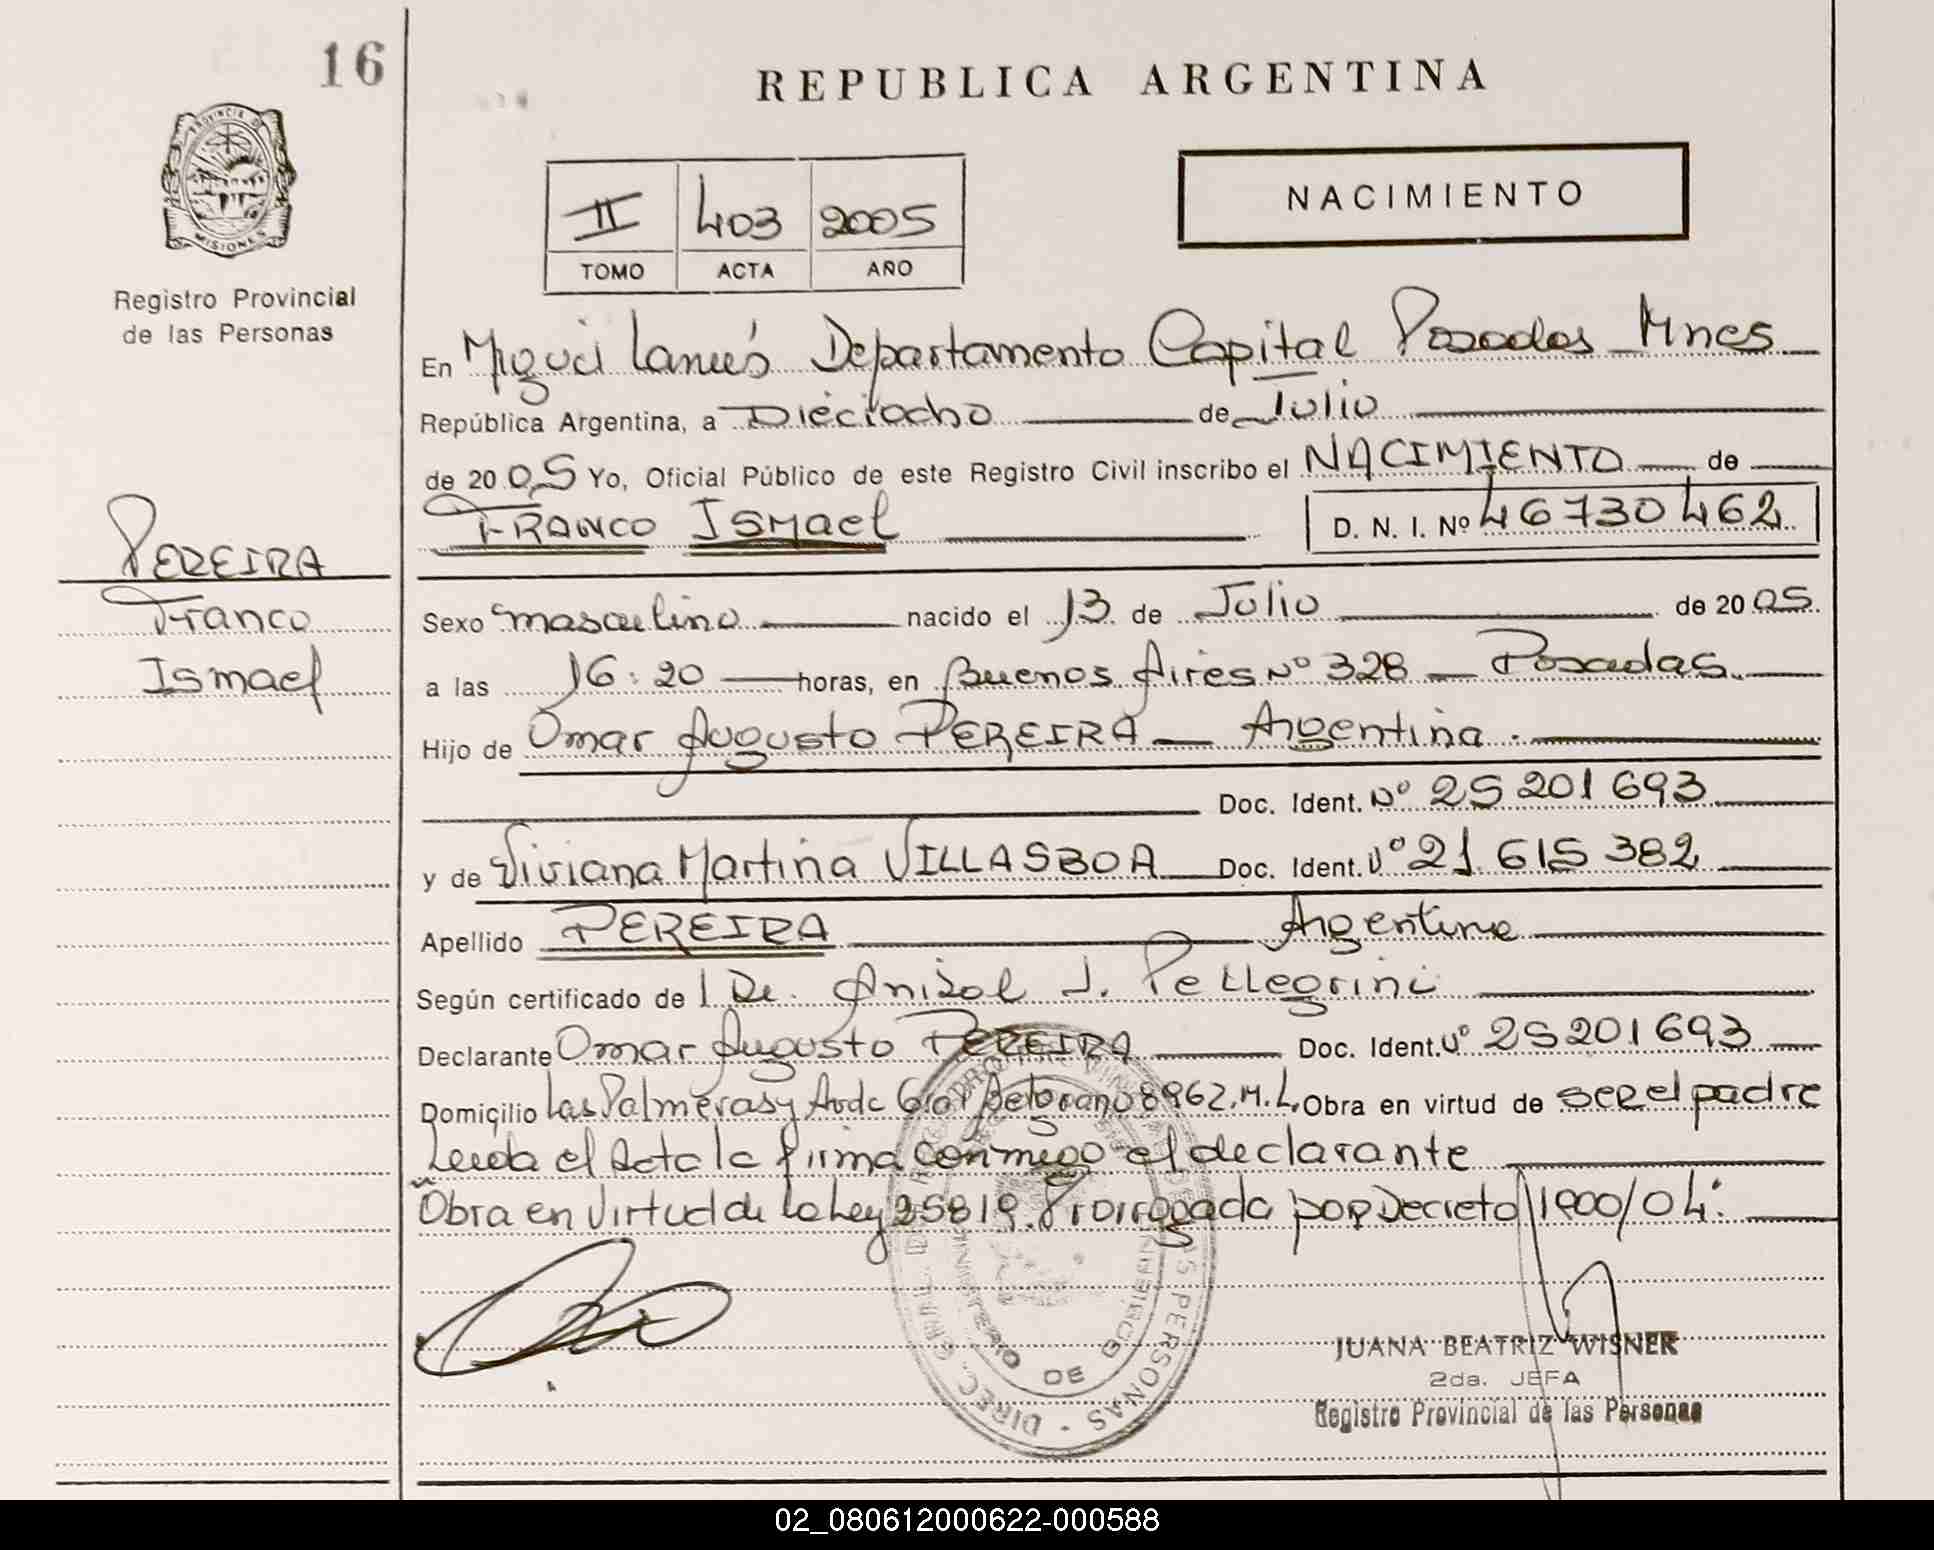 16
REPUBLICA ARGENTINA
PROVINCIA DE MISIONES
Registro Provincial
de las Personas
II 403 2005
TOMO ACTA AÑO
NACIMIENTO
En Miguel Lanús Departamento Capital Posadas Mnes
República Argentina, a Dieciocho de Julio
de 2005 Yo, Oficial Público de este Registro Civil inscribo el NACIMIENTO de
FRANCO ISMAEL D. N. I. Nº 46730462
PEREIRA
Franco
Ismael
Sexo masculino nacido el 13 de Julio de 2005
a las 16:20 horas, en Buenos Aires Nº 328 — Posadas.
Hijo de Omar Augusto PEREIRA — Argentina.
Doc. Ident. Nº 25 201 693
y de Viviana Martina VILLASBOA Doc. Ident. Nº 21 615 382
Apellido PEREIRA Argentina
Según certificado de J. Pellegrini
Declarante Omar Augusto PEREIRA Doc. Ident. Nº 25201693
Domicilio Las Palmeras y Avda Gral Belgrano 8962.M.L. Obra en virtud de ser el padre
Leída el Acta la firma conmigo el declarante
Obra en virtud de la Ley 25819. Prorrogada por Decreto 1900/04.
DIREC. GENERAL DEL REGISTRO PROVINCIAL DE LAS PERSONAS
MINISTERIO DE GOBIERNO
JUANA BEATRIZ WISNER
2da. JEFA
Registro Provincial de las Personas
02_080612000622-000588